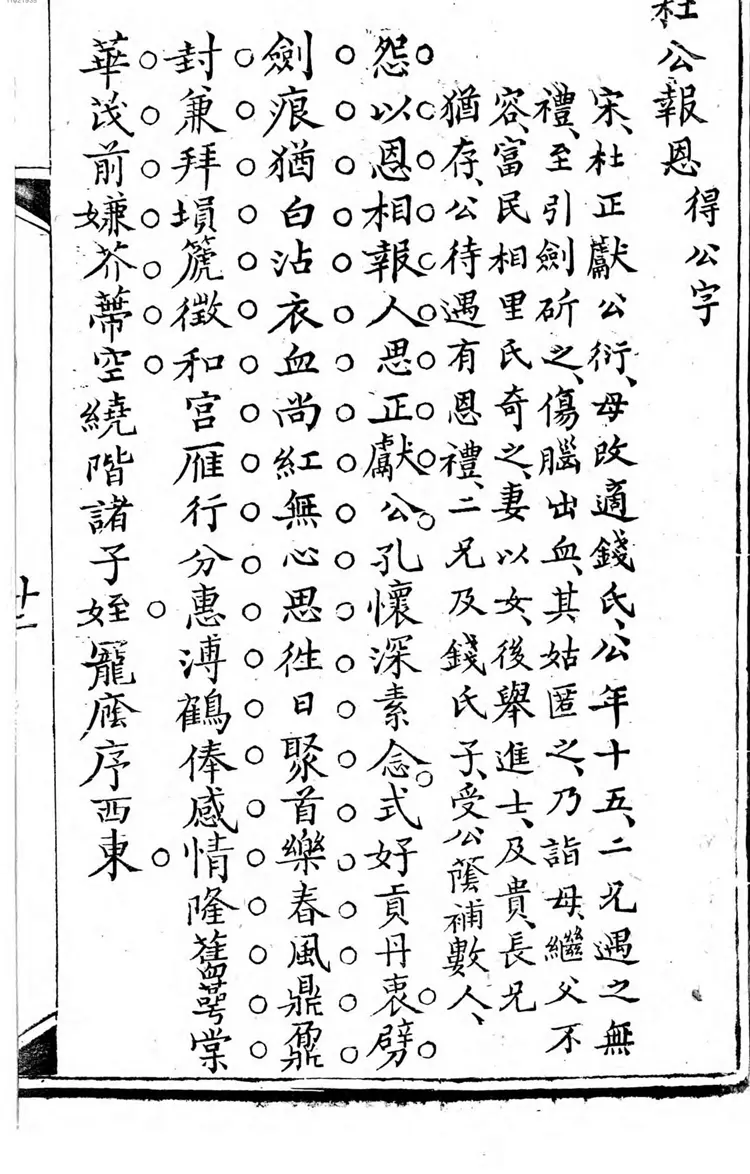 杜公報恩 得公字
宋、杜正獻公衍、母改適錢氏、公年十五、二兄遇之無
禮、至引劍斫之、傷腦出血、其姑匿之、乃詣母、繼父不
容、富民相里氏奇之、妻以女、後舉進士、及貴、長兄
猶存、公待遇有恩禮、二兄及錢氏子、受公蔭補數人、
怨以恩相報人思正獻公孔懷深素念式好貢丹衷劈
劍痕猶白沾衣血尚紅無心思徃日聚首樂春風鼎鼐
封兼拜塤箎徵和宮雁行分惠溥鶴俸感情隆舊萼棠
華茂前嫌芥蔕空繞階諸子姪寵廕序西東
十二